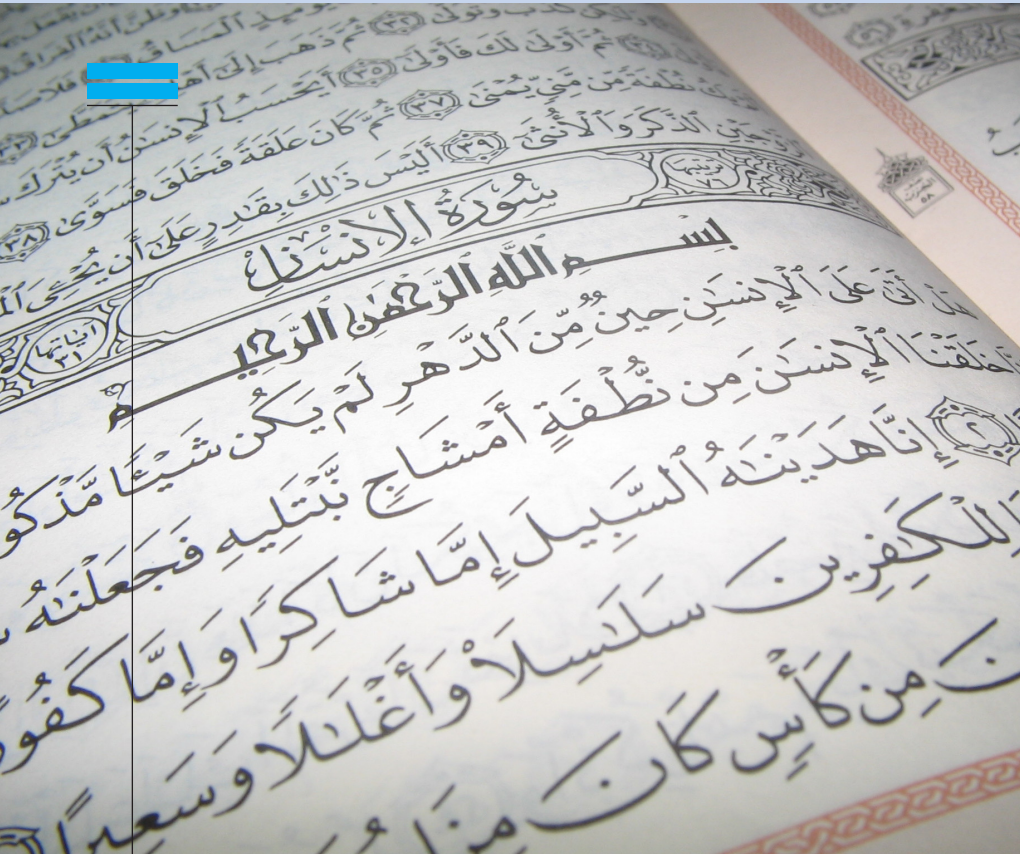 وَلَٰكِن كَذَّبَ وَتَوَلَّىٰ ٣٢ ثُمَّ ذَهَبَ إِلَىٰ
ثُمَّ أَوْلَىٰ لَكَ فَأَوْلَىٰ ٣٥ أَيَحْسَبُ ٱلْإِنسَٰنُ أَن يُتْرَكَ
يَكُ نُطْفَةً مِّن مَّنِىٍّ يُمْنَىٰ ٣٧ ثُمَّ كَانَ عَلَقَةً فَخَلَقَ فَسَوَّىٰ ٣٨
ٱلذَّكَرَ وَٱلْأُنثَىٰٓ ٣٩ أَلَيْسَ ذَٰلِكَ بِقَٰدِرٍ عَلَىٰٓ أَن يُحْـِۧىَ
ترتيبها ٧٦ سُورَةُ الإِنسَانِ آياتها ٣١
بِسْمِ ٱللَّهِ ٱلرَّحْمَٰنِ ٱلرَّحِيمِ
هَلْ أَتَىٰ عَلَى ٱلْإِنسَٰنِ حِينٌ مِّنَ ٱلدَّهْرِ لَمْ يَكُن شَيْـًٔا مَّذْكُو
خَلَقْنَا ٱلْإِنسَٰنَ مِن نُّطْفَةٍ أَمْشَاجٍ نَّبْتَلِيهِ فَجَعَلْنَٰهُ
٢ إِنَّا هَدَيْنَٰهُ ٱلسَّبِيلَ إِمَّا شَاكِرًا وَإِمَّا كَفُو
لِلْكَٰفِرِينَ سَلَٰسِلَا۟ وَأَغْلَٰلًا وَسَعِيرًا
مِن كَأْسٍ كَانَ مِزَا